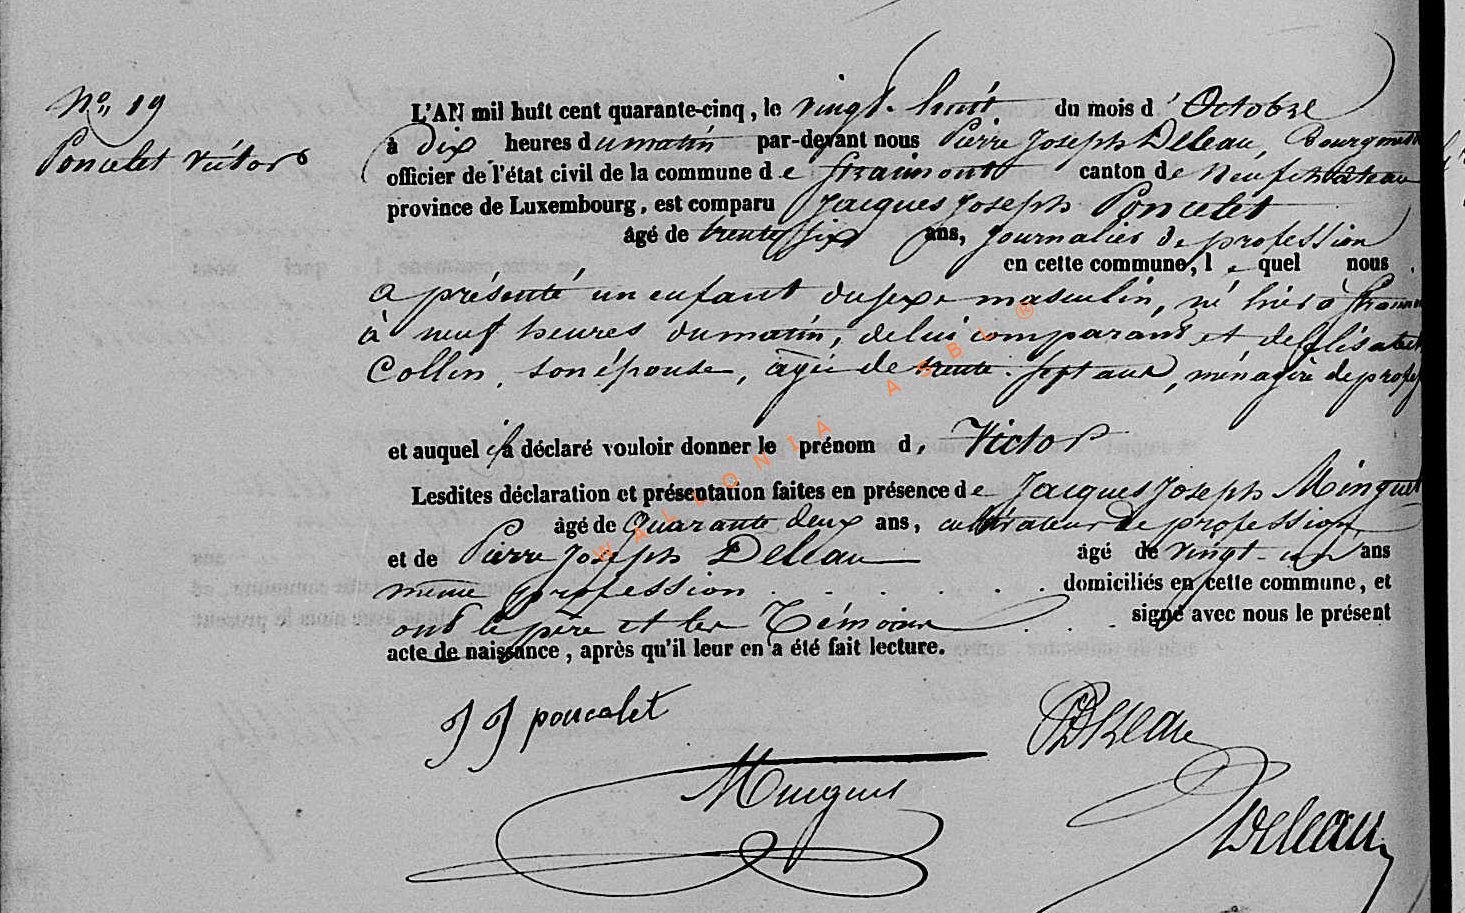 No 19
Poncelet Victor
L'AN mil huit cent quarante-cinq, le vingt-huit du mois d'Octobre
à Dix heures du matin par-devant nous Pierre Joseph Deleau, Bourgmestre
officier de l'état civil de la commune de Straimont canton de Neufchâteau
province de Luxembourg, est comparu Jacques Joseph Poncelet
âgé de trente six ans, journalier de profession
en cette commune, lequel nous
a présenté un enfant du sexe masculin, né hier à Straimont
à neuf heures du matin, de lui comparant et de Elisabeth
Collin, son épouse, âgée de trente-sept ans, ménagère de profes
et auquel il a déclaré vouloir donner le prénom de Victor
Lesdites déclaration et présentation faites en présence de Jacques Joseph Minguet
âgé de Quarante deux ans, cultivateur de profession
et de Pierre Joseph Deleau âgé de vingt-un ans
même profession . . . . . . domiciliés en cette commune, et
ont le père et les Témoins . . . signé avec nous le présent
acte de naissance, après qu'il leur en a été fait lecture.
J J poncelet
PJDeleau
Minguet
Deleau
WALLONIA ASBL ®